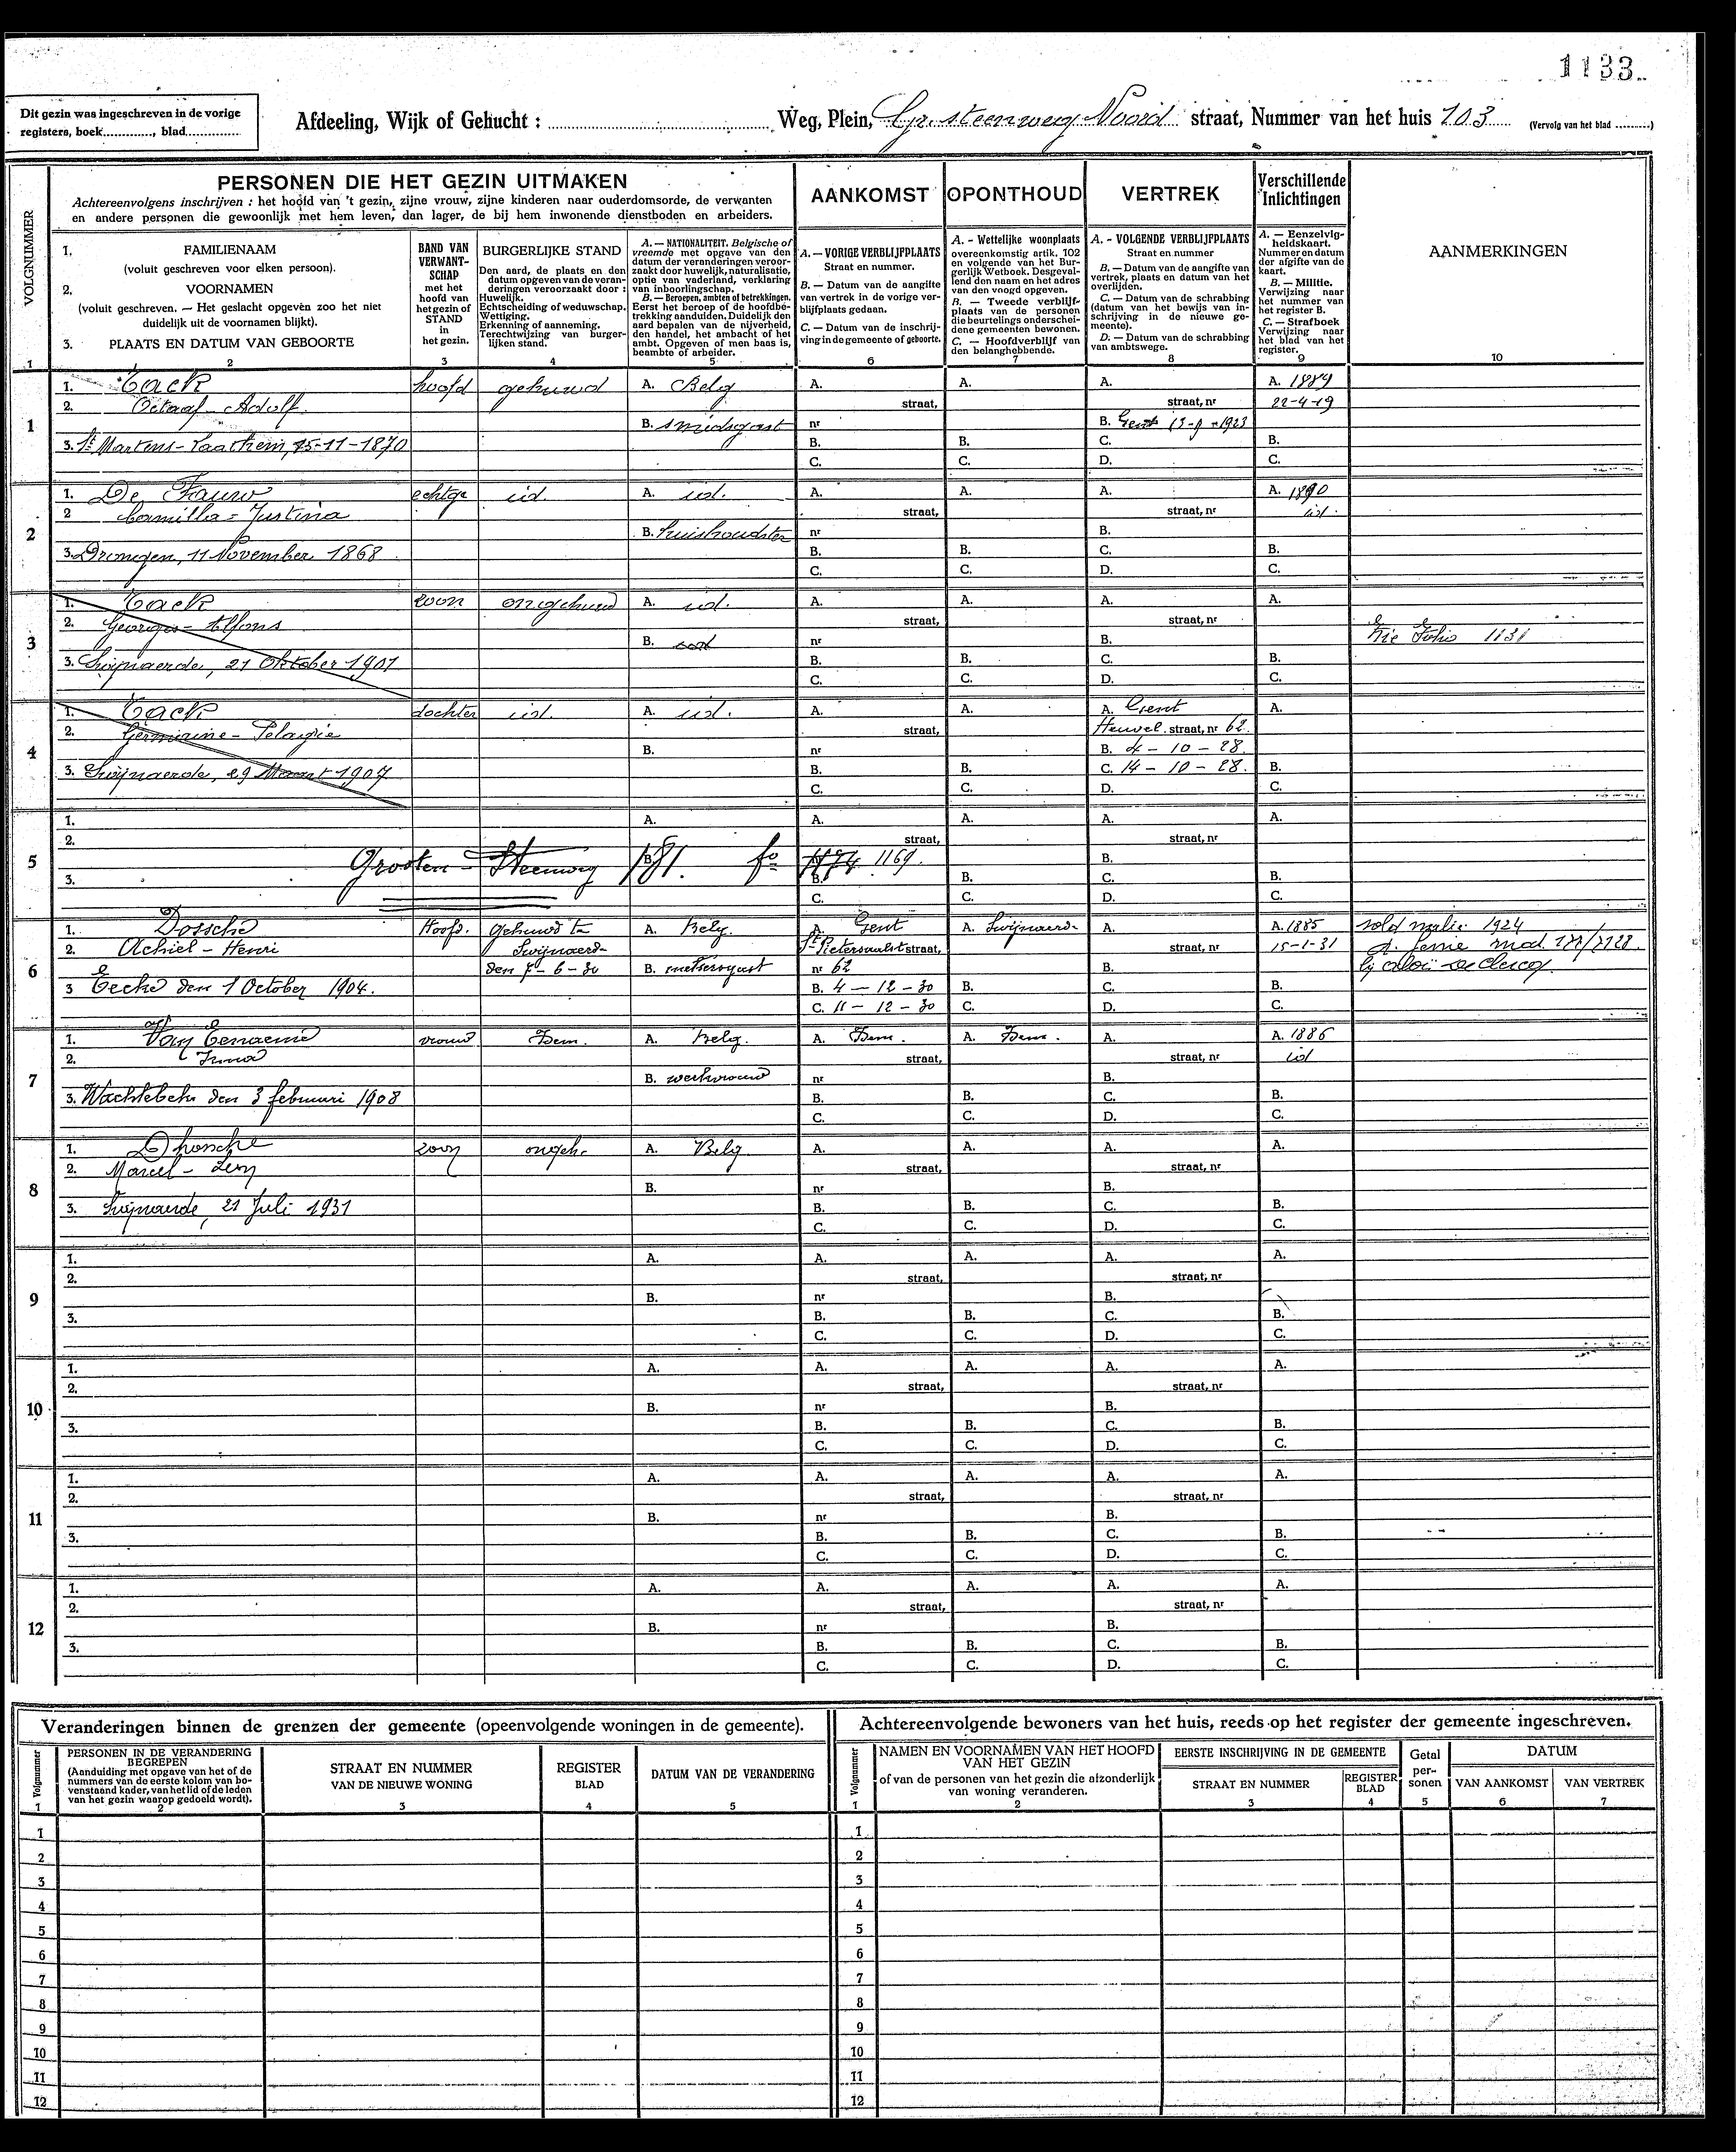 1133
Dit gezin was ingeschreven in de vorige
registers, boek............, blad..............
Afdeeling, Wijk of Gehucht : ........................ Weg, Plein, Gr. steenweg Noord straat, Nummer van het huis 103 (Vervolg van het blad ..........)
VOLGNUMMER
PERSONEN DIE HET GEZIN UITMAKEN
Achtereenvolgens inschrijven : het hoofd van 't gezin, zijne vrouw, zijne kinderen naar ouderdomsorde, de verwanten
en andere personen die gewoonlijk met hem leven, dan lager, de bij hem inwonende dienstboden en arbeiders.
AANKOMST
OPONTHOUD
VERTREK
Verschillende
Inlichtingen
1. FAMILIENAAM
(voluit geschreven voor elken persoon).
2. VOORNAMEN
(voluit geschreven. — Het geslacht opgeven zoo het niet
duidelijk uit de voornamen blijkt).
3. PLAATS EN DATUM VAN GEBOORTE
BAND VAN
VERWANT-
SCHAP
met het
hoofd van
het gezin of
STAND
in
het gezin.
BURGERLIJKE STAND
Den aard, de plaats en den
datum opgeven van de veran-
deringen veroorzaakt door :
Huwelijk.
Echtscheiding of weduwschap.
Wettiging.
Erkenning of aanneming.
Terechtwijzing van burger-
lijken stand.
A. — NATIONALITEIT. Belgische of
vreemde met opgave van den
datum der veranderingen veroor-
zaakt door huwelijk, naturalisatie,
optie van vaderland, verklaring
van inboorlingschap.
B. — Beroepen, ambten of betrekkingen.
Eerst het beroep of de hoofdbe-
trekking aanduiden. Duidelijk den
aard bepalen van de nijverheid,
den handel, het ambacht of het
ambt. Opgeven of men baas is,
beambte of arbeider.
A. — VORIGE VERBLIJFPLAATS
Straat en nummer.
B. — Datum van de aangifte
van vertrek in de vorige ver-
blijfplaats gedaan.
C. — Datum van de inschrij-
ving in de gemeente of geboorte.
A. - Wettelijke woonplaats
overeenkomstig artik. 102
en volgende van het Bur-
gerlijk Wetboek. Desgeval-
lend den naam en het adres
van den voogd opgeven.
B. — Tweede verblijf-
plaats van de personen
die beurtelings onderschei-
dene gemeenten bewonen.
C. — Hoofdverblijf van
den belanghebbende.
A. - VOLGENDE VERBLIJFPLAATS
Straat en nummer
B. — Datum van de aangifte van
vertrek, plaats en datum van het
overlijden.
C. — Datum van de schrabbing
(datum van het bewijs van in-
schrijving in de nieuwe ge-
meente).
D. — Datum van de schrabbing
van ambtswege.
A. — Eenzelvig-
heidskaart.
Nummer en datum
der afgifte van de
kaart.
B. — Militie.
Verwijzing naar
het nummer van
het register B.
C. — Strafboek
Verwijzing naar
het blad van het
register.
AANMERKINGEN
1 2 3 4 5 6 7 8 9 10
1
1. Tack hoofd gehuwd A. Belg A. A. A. A. 1889
2. Octaaf - Adolf straat, straat, nr 22-4-19
B. smidsgast nr B. Gent 1923
3. St Martens-Laathem, 15-11-1870 B. B. C. B.
C. C. D. C.
2
1. De Fauw echtge id. A. id. A. A. A. A. 1890
2 Camilla = Justina straat, straat, nr id.
B. huishoudster nr B.
3. Drongen, 11 November 1868 B. B. C. B.
C. C. D. C.
3
1. Tack zoon ongehuwd A. id. A. A. A. A.
2. Georges - Alfons straat, straat, nr
B. nr B. Zie Folio 1131
3. Swijnaerde, 21 Oktober 1901 B. B. C. B.
C. C. D. C.
4
1. Tack dochter id. A. id. A. A. A. Gent A.
2. Germaine - Pelagie straat, Heuvel straat, nr 62
B. nr B. 4 - 10 - 28.
3. Swijnaerde, 29 Maart 1907 B. B. C. 14 - 10 - 28. B.
C. C. D. C.
5
1. A. A. A. A. A.
2. straat, straat, nr
Grooten - Steenweg 181. fo 1174 1169. B.
3. B. B. C. B.
C. C. D. C.
6
1. Dossche Hoofd. gehuwd te A. Belg. A. Gent A. Swijnaerde A. A. 1885 1924
2. Achiel - Henri Swijnaerde St Pietersaalst straat, straat, nr 15-1-31
den 7 - 6 - 30 B. metsersgast nr 62 B. bij De Clercq
3 Eecke den 1 October 1904. B. 4 - 12 - 30 B. C. B.
C. 11 - 12 - 30 C. D. C.
7
1. Van Eenaeme vrouw Idem. A. Belg. A. Idem. A. Idem. A. A. 1886
2. Irma straat, straat, nr id
B. werkvrouw nr B.
3. Wachtebeke den 3 februari 1908 B. B. C. B.
C. C. D. C.
8
1. Dhossche zoon ongeh. A. Belg A. A. A. A.
2. Marcel - Leon straat, straat, nr
B. nr B.
3. Swijnaerde, 21 Juli 1931 B. B. C. B.
C. C. D. C.
9
1. A. A. A. A. A.
2. straat, straat, nr
B. nr B.
3. B. B. C. B.
C. C. D. C.
10
1. A. A. A. A. A.
2. straat, straat, nr
B. nr B.
3. B. B. C. B.
C. C. D. C.
11
1. A. A. A. A. A.
2. straat, straat, nr
B. nr B.
3. B. B. C. B.
C. C. D. C.
12
1. A. A. A. A. A.
2. straat, straat, nr
B. nr B.
3. B. B. C. B.
C. C. D. C.
Veranderingen binnen de grenzen der gemeente (opeenvolgende woningen in de gemeente).
Volgnummer
PERSONEN IN DE VERANDERING
BEGREPEN
(Aanduiding met opgave van het of de
nummers van de eerste kolom van bo-
venstaand kader, van het lid of de leden
van het gezin waarop gedoeld wordt).
STRAAT EN NUMMER
VAN DE NIEUWE WONING
REGISTER
BLAD
DATUM VAN DE VERANDERING
1 2 3 4 5
1
2
3
4
5
6
7
8
9
10
11
12
Achtereenvolgende bewoners van het huis, reeds op het register der gemeente ingeschreven.
Volgnummer
NAMEN EN VOORNAMEN VAN HET HOOFD
VAN HET GEZIN
of van de personen van het gezin die afzonderlijk
van woning veranderen.
EERSTE INSCHRIJVING IN DE GEMEENTE
STRAAT EN NUMMER
REGISTER
BLAD
Getal
per-
sonen
DATUM
VAN AANKOMST
VAN VERTREK
1 2 3 4 5 6 7
1
2
3
4
5
6
7
8
9
10
11
12